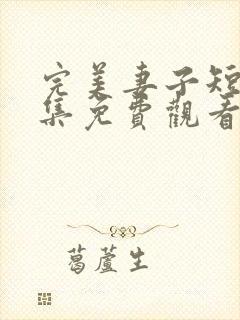 完美妻子短
集免費觀看
葛蘆生